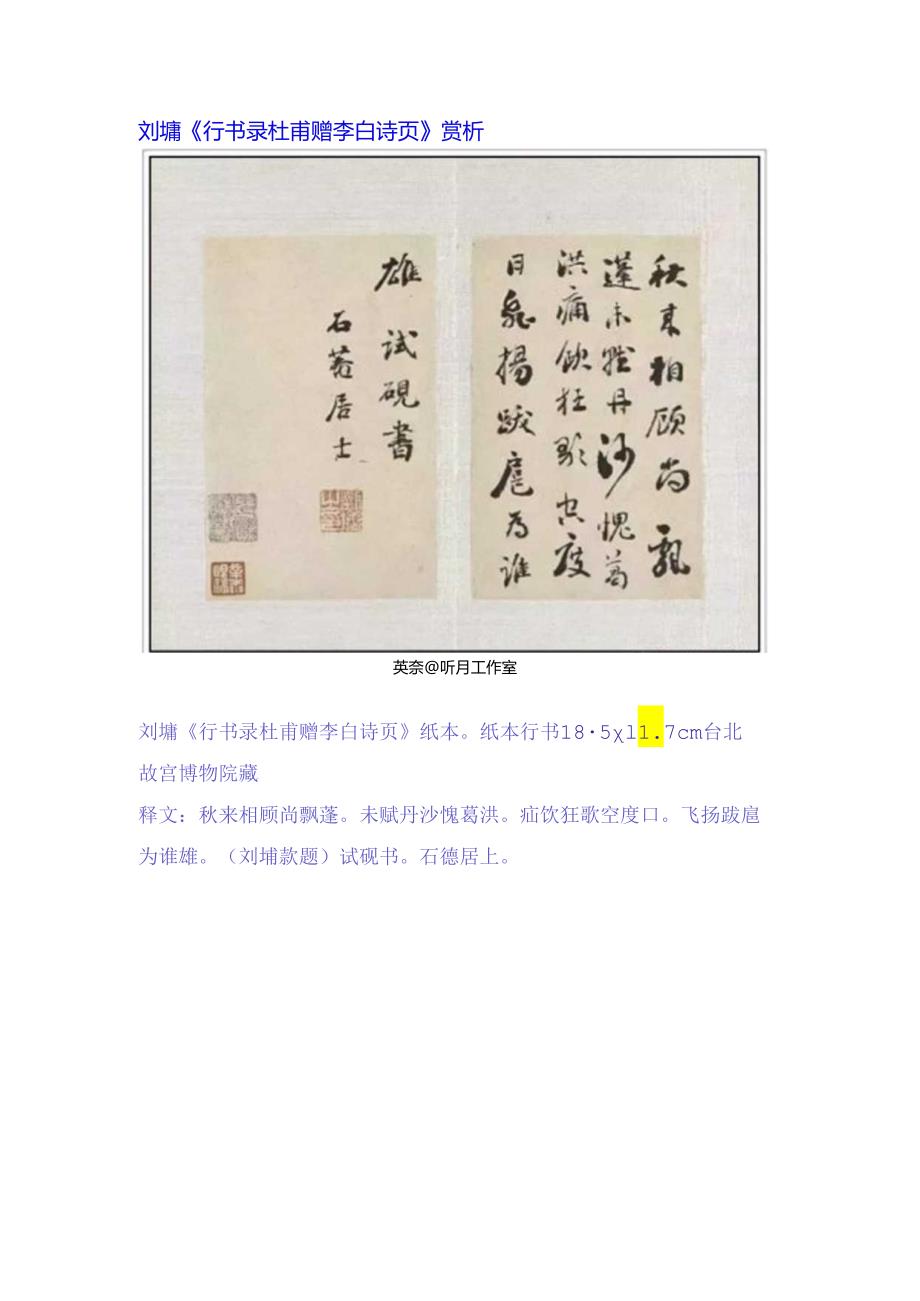 刘墉《行书录杜甫赠李白诗页》赏析
秋来相顾尚飘
蓬未赋丹沙愧葛
洪痛饮狂歌空度
日飛揚跋扈为誰
雄 试硯書
石菴居士
英奈@听月工作室
刘墉《行书录杜甫赠李白诗页》纸本。纸本行书18·5χl1.7cm台北
故宫博物院藏
释文：秋来相顾尚飘蓬。未赋丹沙愧葛洪。疝饮狂歌空度口。飞扬跋扈
为谁雄。（刘埔款题）试砚书。石德居上。